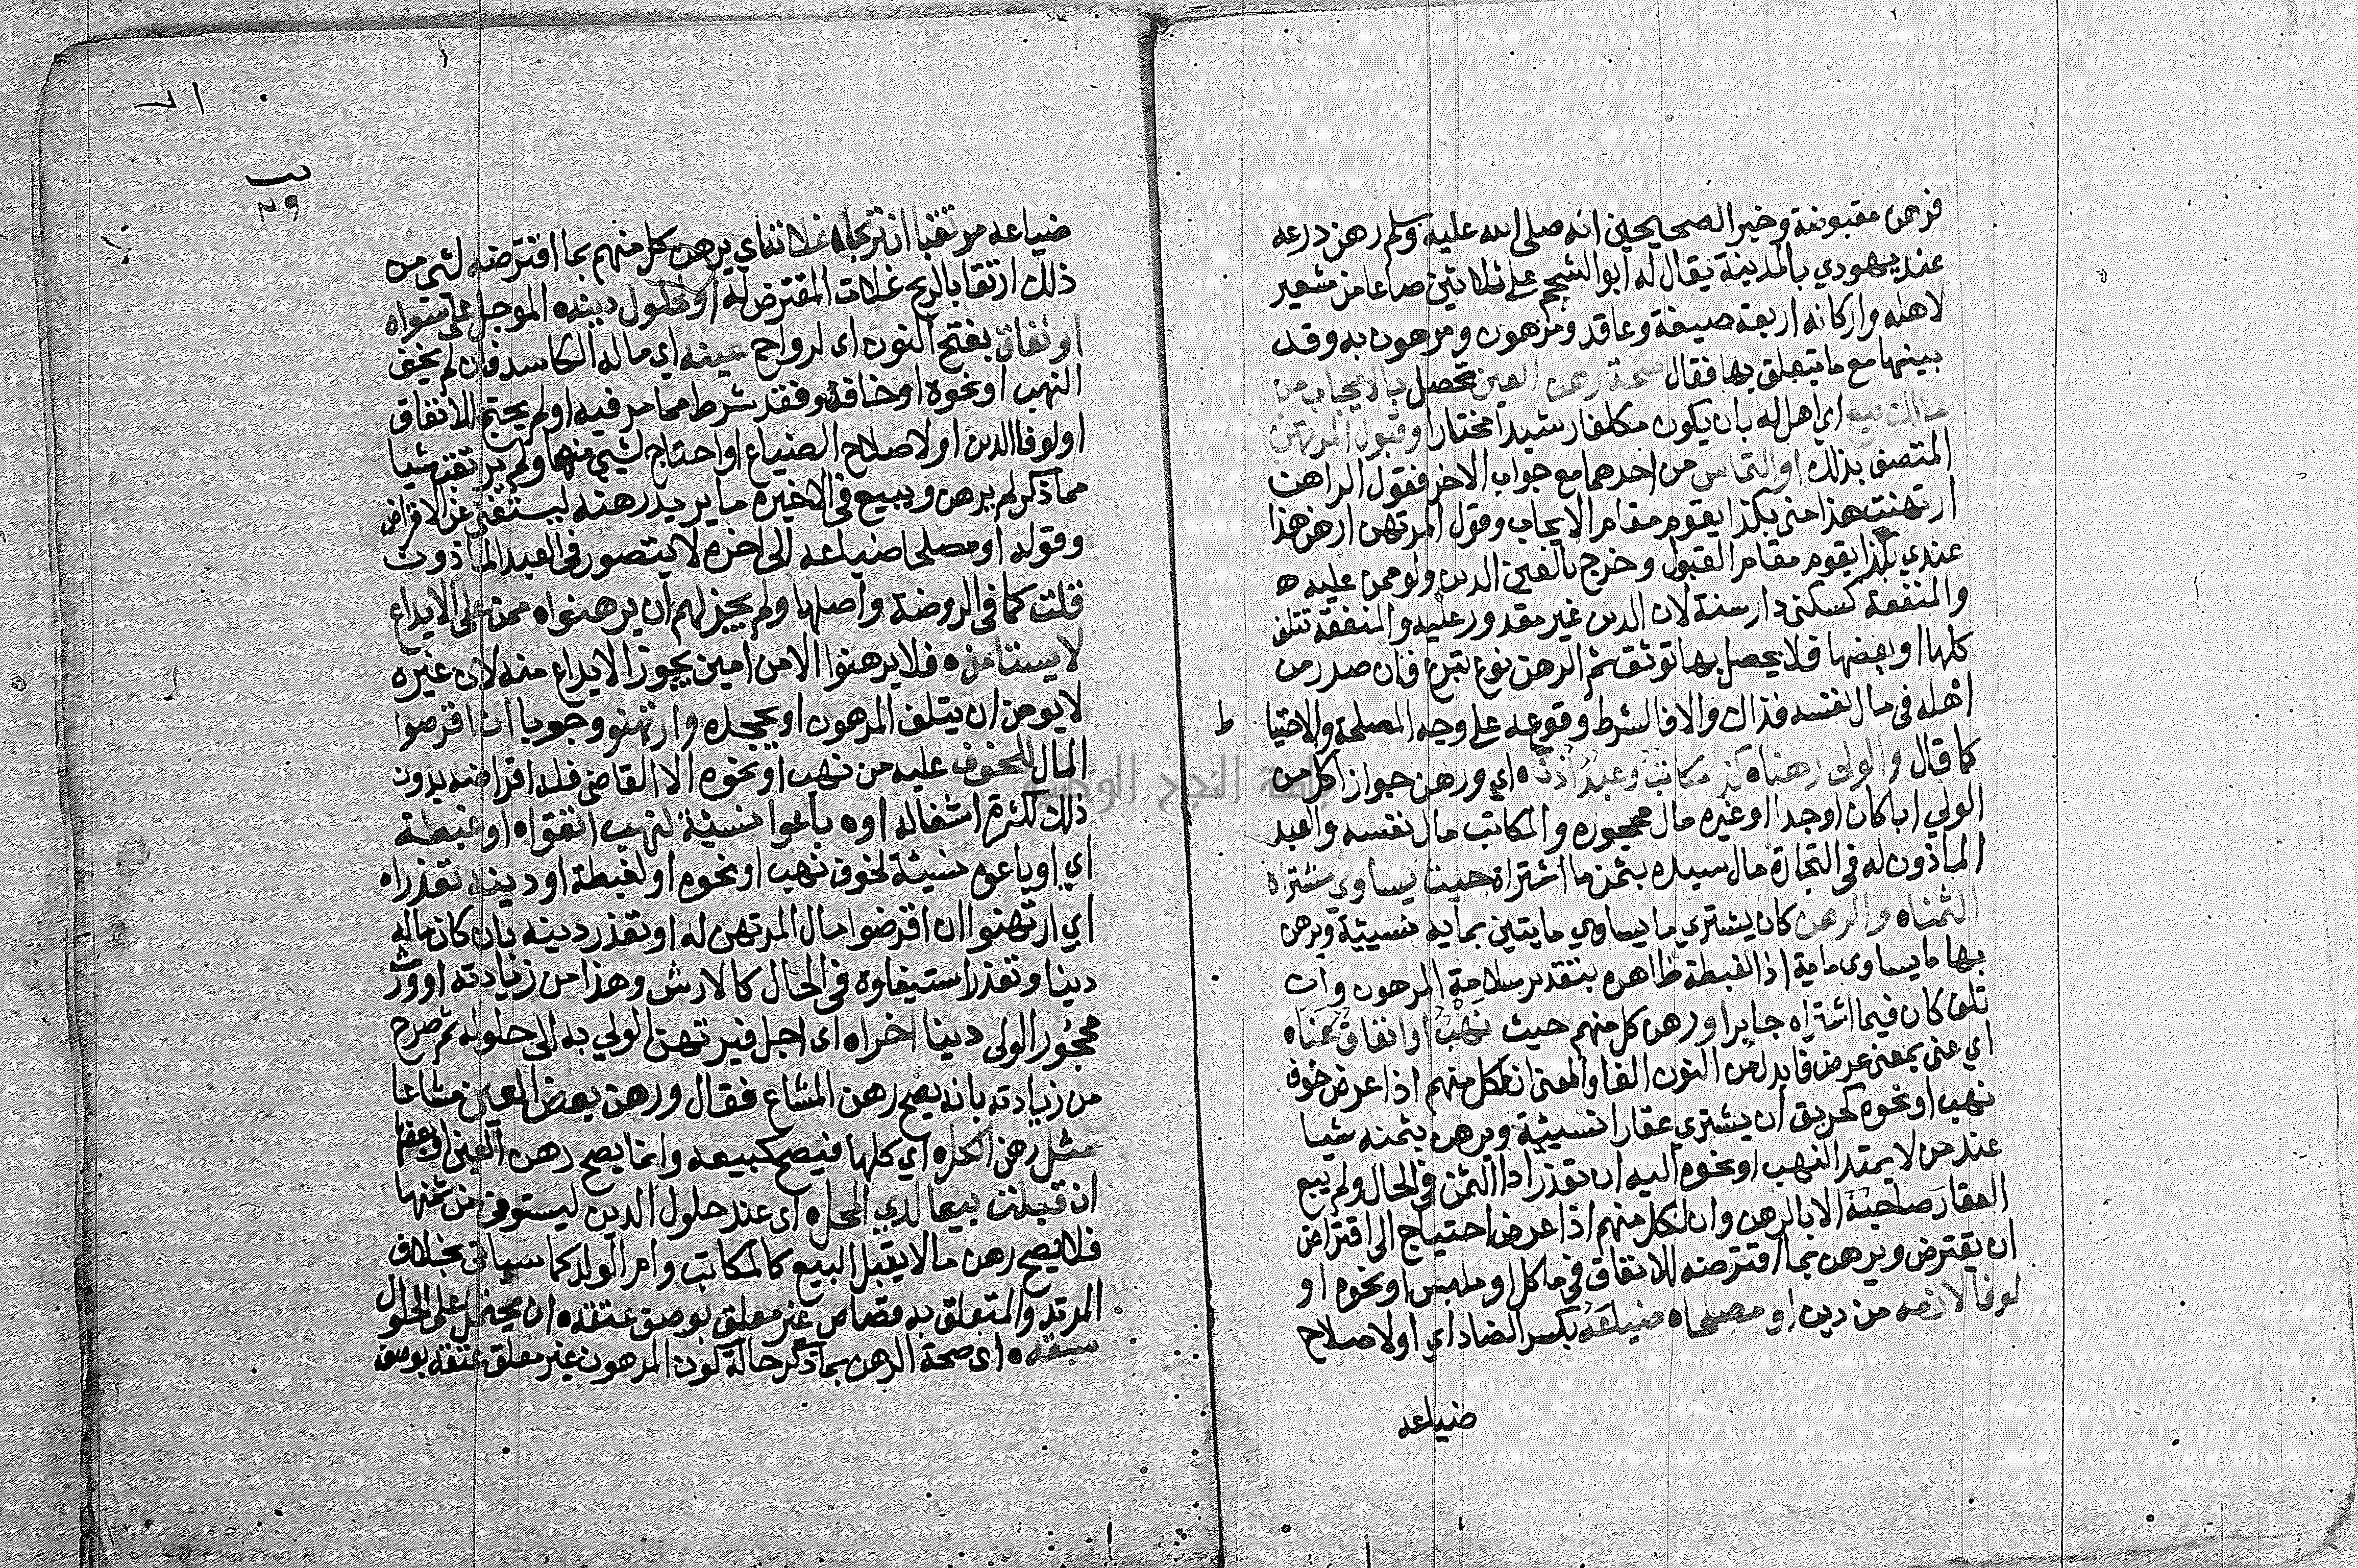 فرهن مقبوضة وخبر الصحيحين انه صلى الله عليه وسلم رهن درعه
عند يهودي بالمدينة يقال له ابو الشحم على ثلاثين صاعا من شعير
لاهله واركانه اربعة صيغة وعاقد ومرهون ومرهون به وقد
بينها مع ما يتعلق بها فقال صحة رهن العين تحصل بالايجاب من
مالك بيع اي اهل له بان يكون مكلفا رشيدا مختارا وقبول المرتهن
المتصف بذلك او التماس من احدهما مع جواب الاخر فقول الراهن
ارتهنت هذا مني بكذا يقوم مقام الايجاب وقول المرتهن ارهن هذا
عندي بكذا يقوم مقام القبول وخرج بالعين الدين ولو ممن عليه ه
والمنفعة كسكنى دار سنة لان الدين غير مقدور عليه والمنفعة تتلف
كلها او بعضها فلا يحصل بها توثق ثم الرهن نوع تبرع فان صدر من
اهله في مال نفسه فذاك والا فالشرط وقوعه على وجه المصلحة والاحتيا ط
كما قال والولي رهناه كذ مكاتب وعبد اذناه اي ورهن جوازا كل من
الولي ابا كان اوجدا او غيره مال محجوره والمكاتب مال نفسه والعبد
الماذون له في التجارة مال سيده بثمن ما اشتراه حيث يساوي مشتراه
الثمناه والرهن كان يشتري ما يساوي مايتين بمايه نسيئة ويرهن
بها ما يساوي ماية اذ الغبطة ظاهره بتقدير سلامة المرهون وان
تلف كان فيما اشتراه جابرا ورهن كل منهم حيث نهب او انفاق عناه
اي عنى بمعنى عرض فابدل من النون الفا والمعنى ان لكل منهم اذا عرض خوف
نهب او نحوه كحريق ان يشتري عقارا نسيئة ويرهن بثمنه شيا
عند من لا يمتد النهب او نحوه اليه ان تعذر ادا الثمن في الحال ولم يبع
العقار صاحبه الا بالرهن وان لكل منهم اذا عرض احتياج الى اقتراض
ان يقترض ويرهن بما اقترضه للانفاق في ماكل او ملبس او نحوه او
لوفا لازمه من دين او مصلحاه ضياعه بكسر الضاد اي او لاصلاح
ضياعه
٧١
٢٩
ضياعه مرتقبا ان ترتجاه غلاتناي يرهن كل منهم بما اقترضه لشي من
ذلك ارتقابا لربح غلات المقترض له او حلول دينه الموجل على سواه
او نفاق بفتح النون اي لرواج عينه اي ماله الكاسد فان لم يخف
النهب او نحوه او خافه وفقد شرط مما مر فيه او لم يحتج للانفاق
او لوفا الدين او لاصلاح الضياع او احتاج لشي منها ولم يرتقب شيا
مما ذكر لم يرهن ويبيع في الاخيرة ما يريد رهنه ليستغني عن الاقراض
وقوله او مصلحا ضياعه الى اخره لا يتصور في العبد الماذون
قلت كما في الروضة واصلها ولم يجز لهم ان يرهنواه ممن على الايداع
لا يستامنه فلا يرهنوا الا من امين يجوز الايداع منه لان غيره
لا يومن ان يتلف المرهون او يجحده وارتهنو وجوبا ان اقرضوا
المال للخوف عليه من نهب او نحوه الا القاضي فله اقراضه بدون
ذلك لكثرة اشغاله اوه باعوا نسيئة لنهب اتفقواه او غبطة
اي او باعوه نسيئة لخوف نهب او نحوه او لغبطة او دينه تعذراه
اي ارتهنوا ان اقرضوا مال المرتهن له او تعذر دينه بان كان ماله
دينا وتعذر استيفاوه في الحال كالارش وهذا من زيادته او ورث
محجور الولي دينا اخراه اي اجل فيرتهن الولي به الى حلوله ثم صرح
من زيادته بانه يصح رهن المشاع فقال ورهن بعض العين مشاعا
مثل رهن الكله اي كلها فيصح كبيعه وانما يصح رهن العين او بعضها
ان قبلت بيعا لدي المحله اي عند حلول الدين ليستوفى من ثمنها
فلا يصح رهن ما لا يقبل البيع كالمكاتب وام الولد كما سياتي بخلاف
المرتد والمتعلق به قصاص غير معلق بوصف عتقه ان يحتمل على الحلول
سبقه ه اي صحة الرهن بما ذكر حالة كون المرهون غير معلق عتقه بوصف